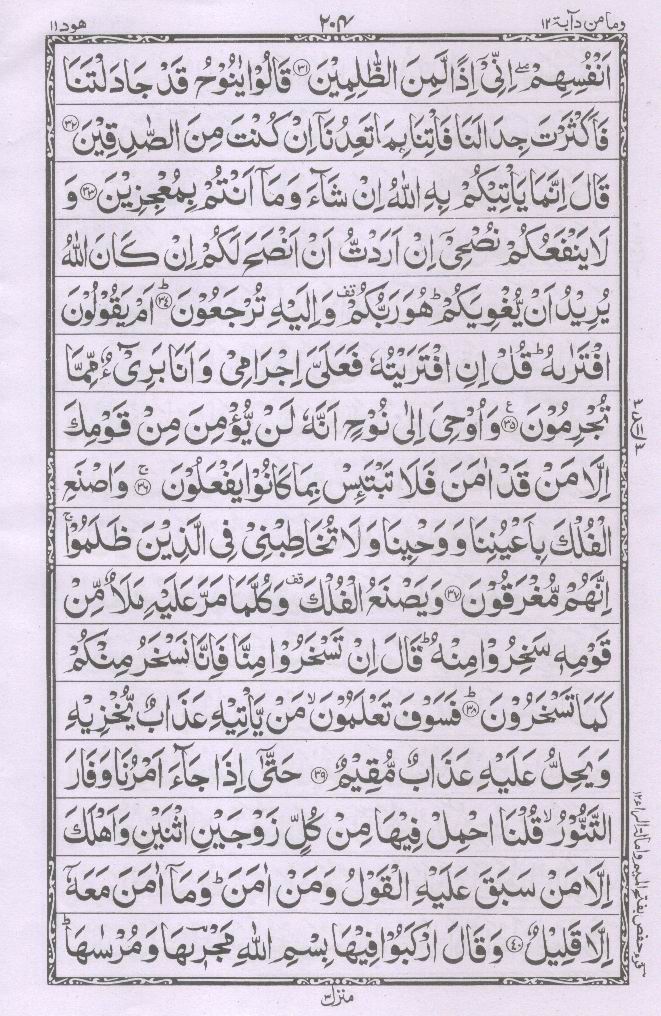 وما من دآبة ١٢
٢٠٤
هود ١١
اَنْفُسِهِمْ ۖۚ اِنِّیْۤ اِذًا لَّمِنَ الظّٰلِمِیْنَ ﴿۳۱﴾ قَالُوْا یٰنُوْحُ قَدْ جَادَلْتَنَا
فَاَكْثَرْتَ جِدَالَنَا فَاْتِنَا بِمَا تَعِدُنَاۤ اِنْ كُنْتَ مِنَ الصّٰدِقِیْنَ ﴿۳۲﴾
قَالَ اِنَّمَا یَاْتِیْكُمْ بِهِ اللّٰهُ اِنْ شَآءَ وَ مَاۤ اَنْتُمْ بِمُعْجِزِیْنَ ﴿۳۳﴾ وَ
لَا یَنْفَعُكُمْ نُصْحِیْۤ اِنْ اَرَدْتُّ اَنْ اَنْصَحَ لَكُمْ اِنْ كَانَ اللّٰهُ
یُرِیْدُ اَنْ یُّغْوِیَكُمْ ؕ هُوَ رَبُّكُمْ ۫ وَ اِلَیْهِ تُرْجَعُوْنَ ﴿ؕ۳۴﴾ اَمْ یَقُوْلُوْنَ
افْتَرٰىهُ ؕ قُلْ اِنِ افْتَرَیْتُهٗ فَعَلَیَّ اِجْرَامِیْ وَ اَنَا بَرِیْٓءٌ مِّمَّا
تُجْرِمُوْنَ ﴿۳۵﴾ وَ اُوْحِیَ اِلٰی نُوْحٍ اَنَّهٗ لَنْ یُّؤْمِنَ مِنْ قَوْمِكَ
اِلَّا مَنْ قَدْ اٰمَنَ فَلَا تَبْتَىِٕسْ بِمَا كَانُوْا یَفْعَلُوْنَ ﴿ۚ۳۶﴾ وَ اصْنَعِ
الْفُلْكَ بِاَعْیُنِنَا وَ وَحْیِنَا وَ لَا تُخَاطِبْنِیْ فِی الَّذِیْنَ ظَلَمُوْا ۚ
اِنَّهُمْ مُّغْرَقُوْنَ ﴿۳۷﴾ وَ یَصْنَعُ الْفُلْكَ ۫ وَ كُلَّمَا مَرَّ عَلَیْهِ مَلَاٌ مِّنْ
قَوْمِهٖ سَخِرُوْا مِنْهُ ؕ قَالَ اِنْ تَسْخَرُوْا مِنَّا فَاِنَّا نَسْخَرُ مِنْكُمْ
كَمَا تَسْخَرُوْنَ ﴿ؕ۳۸﴾ فَسَوْفَ تَعْلَمُوْنَ ۙ مَنْ یَّاْتِیْهِ عَذَابٌ یُّخْزِیْهِ
وَ یَحِلُّ عَلَیْهِ عَذَابٌ مُّقِیْمٌ ﴿۳۹﴾ حَتّٰۤی اِذَا جَآءَ اَمْرُنَا وَ فَارَ
التَّنُّوْرُ ۙ قُلْنَا احْمِلْ فِیْهَا مِنْ كُلٍّ زَوْجَیْنِ اثْنَیْنِ وَ اَهْلَكَ
اِلَّا مَنْ سَبَقَ عَلَیْهِ الْقَوْلُ وَ مَنْ اٰمَنَ ؕ وَ مَاۤ اٰمَنَ مَعَهٗۤ
اِلَّا قَلِیْلٌ ﴿۴۰﴾ وَ قَالَ ارْكَبُوْا فِیْهَا بِسْمِ اللّٰهِ مَجْرٖىهَا وَ مُرْسٰىهَا ؕ
منزل ٣